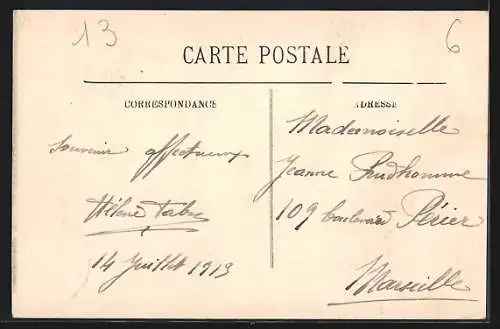 13
6
CARTE POSTALE
CORRESPONDANCE
ADRESSE
Souvenir affectueux
Hélène Fabre
14 Juillet 1913
Mademoiselle
Jeanne Prudhomme
109 boulevard Périer
Marseille